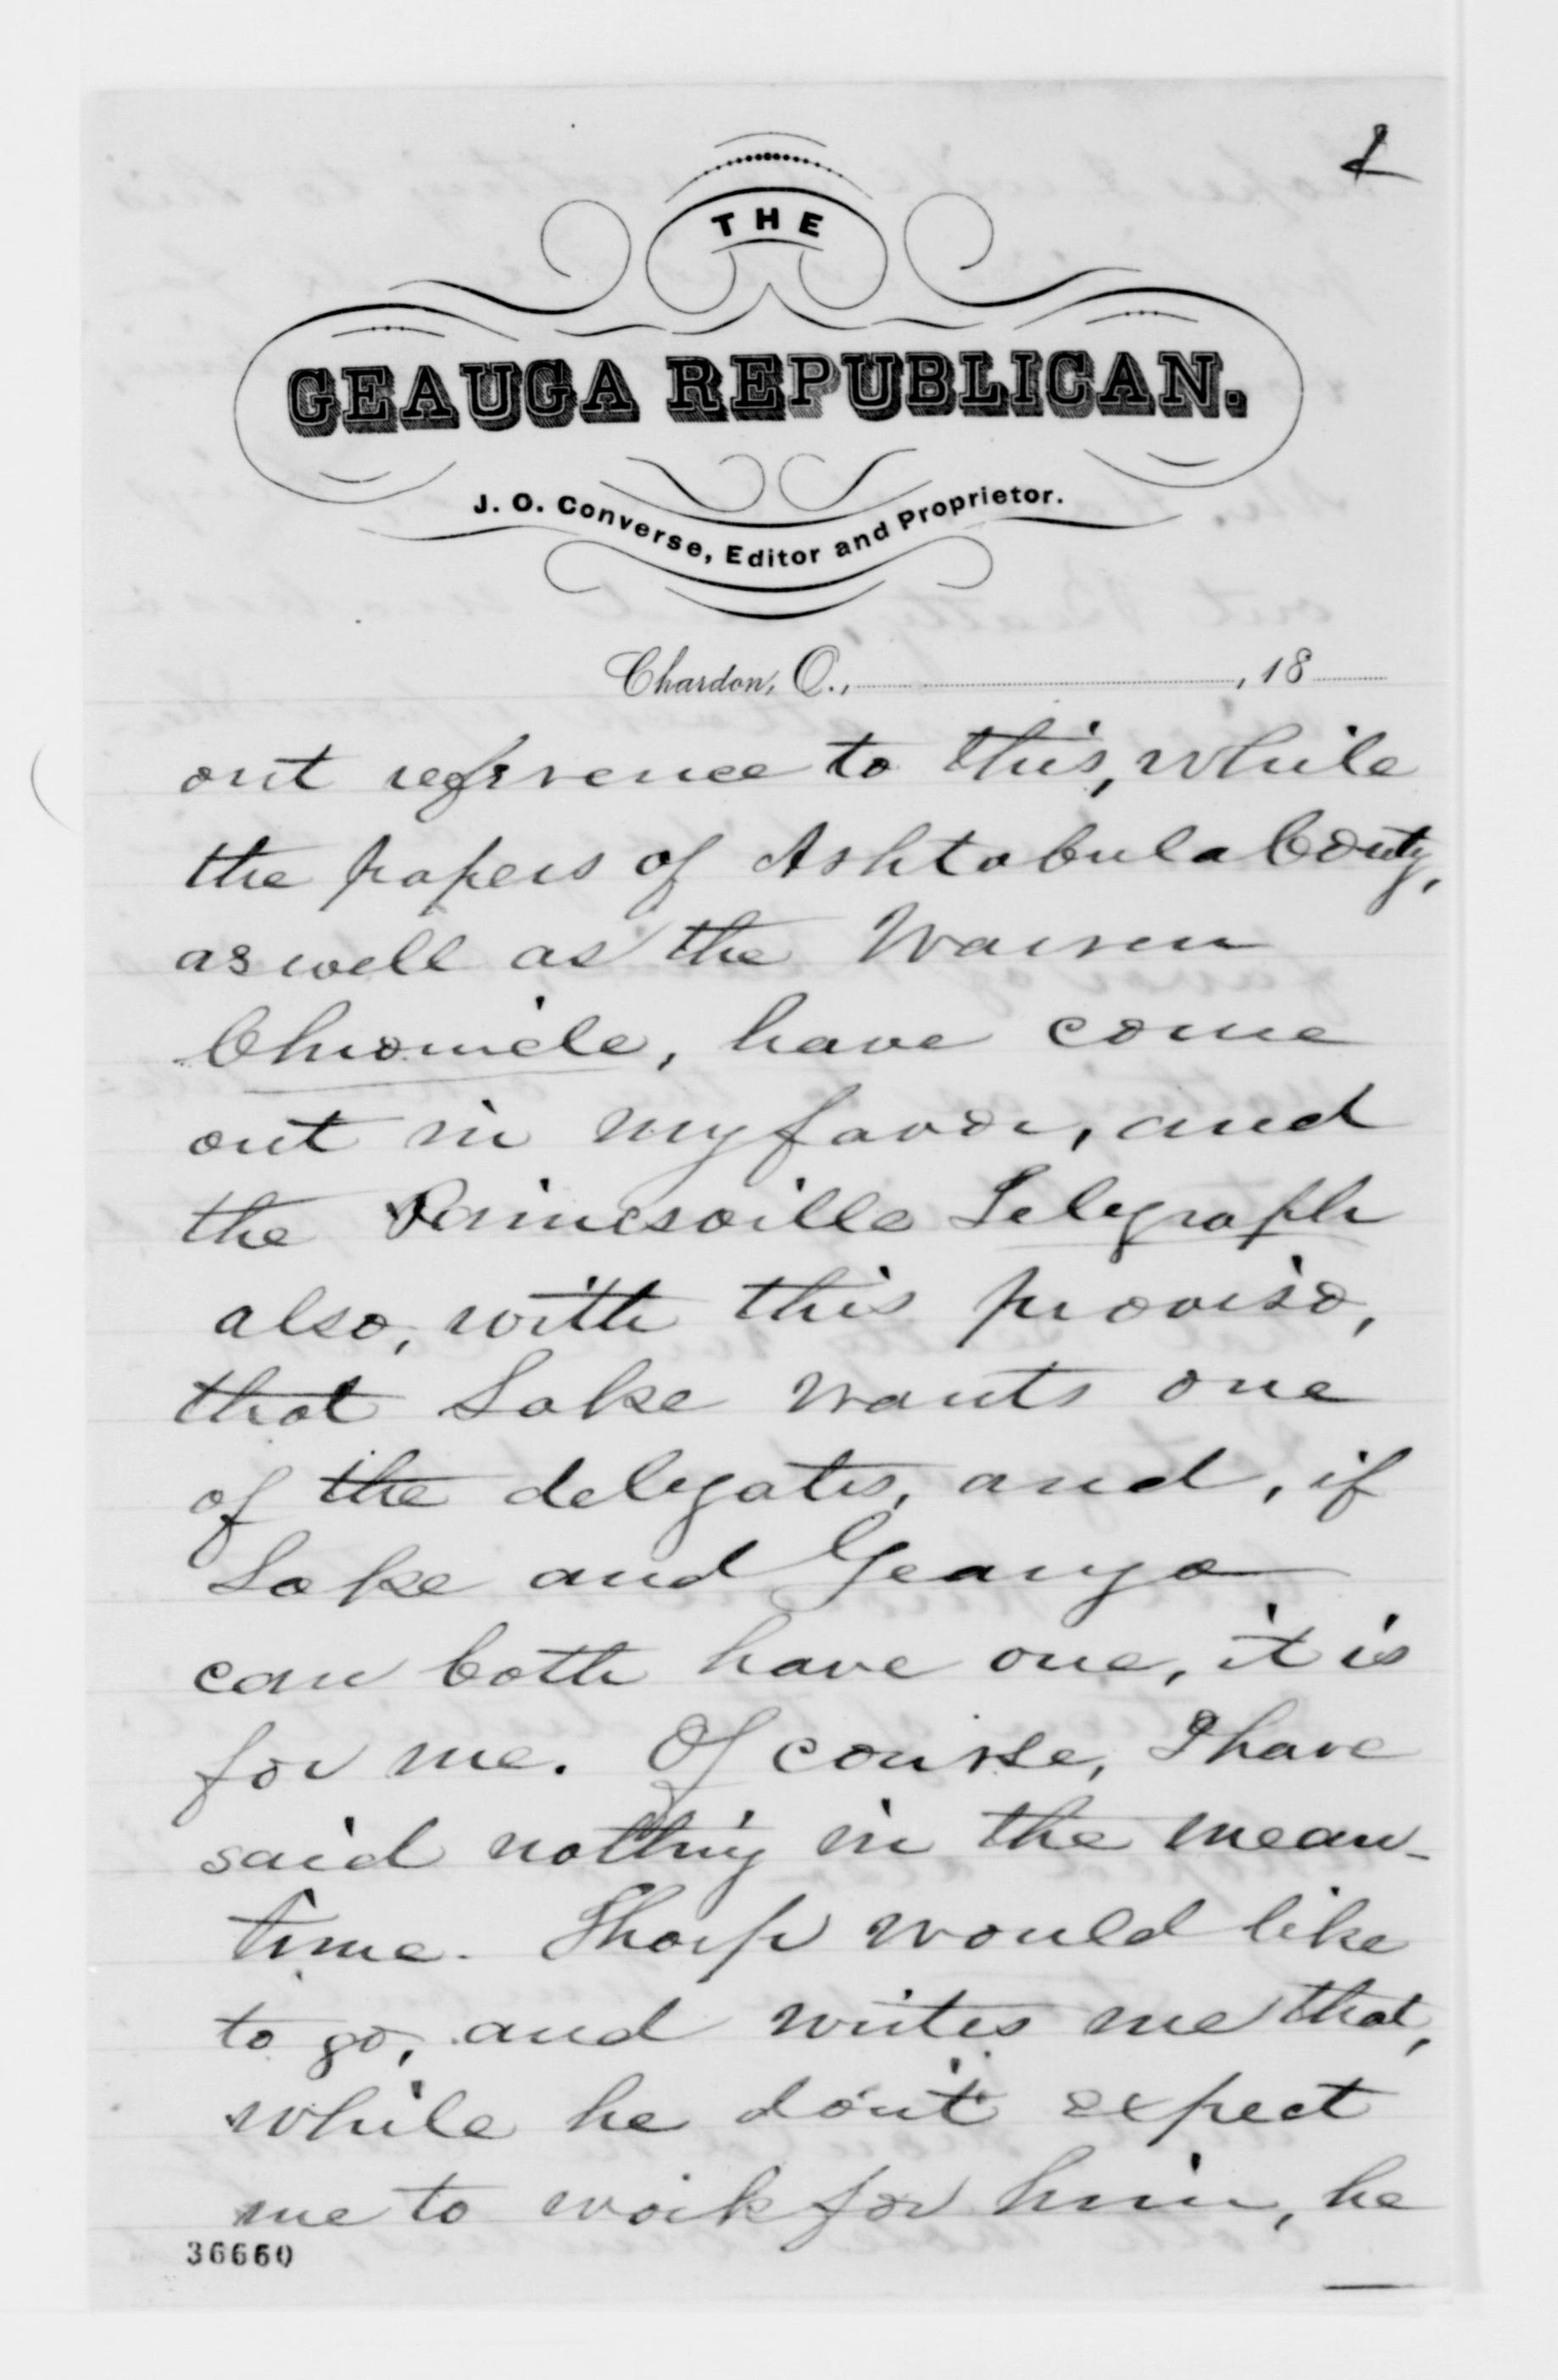 2
THE
GEAUGA REPUBLICAN.
J. O. Converse, Editor and Proprietor.
Chardon, O., , 18
out reference to this, while
the papers of Ashtabula County,
as well as the Warren
Chronicle, have come
out in my favor, and
the Painesville Telegraph
also, with this proviso,
that Lake wants one
of the delegates, and, if
Lake and Geauga
can both have one, it is
for me. Of course, I have
said nothing in the mean-
time. Thorp would like
to go, and writes me that,
while he don't expect
me to work for him, he
36660